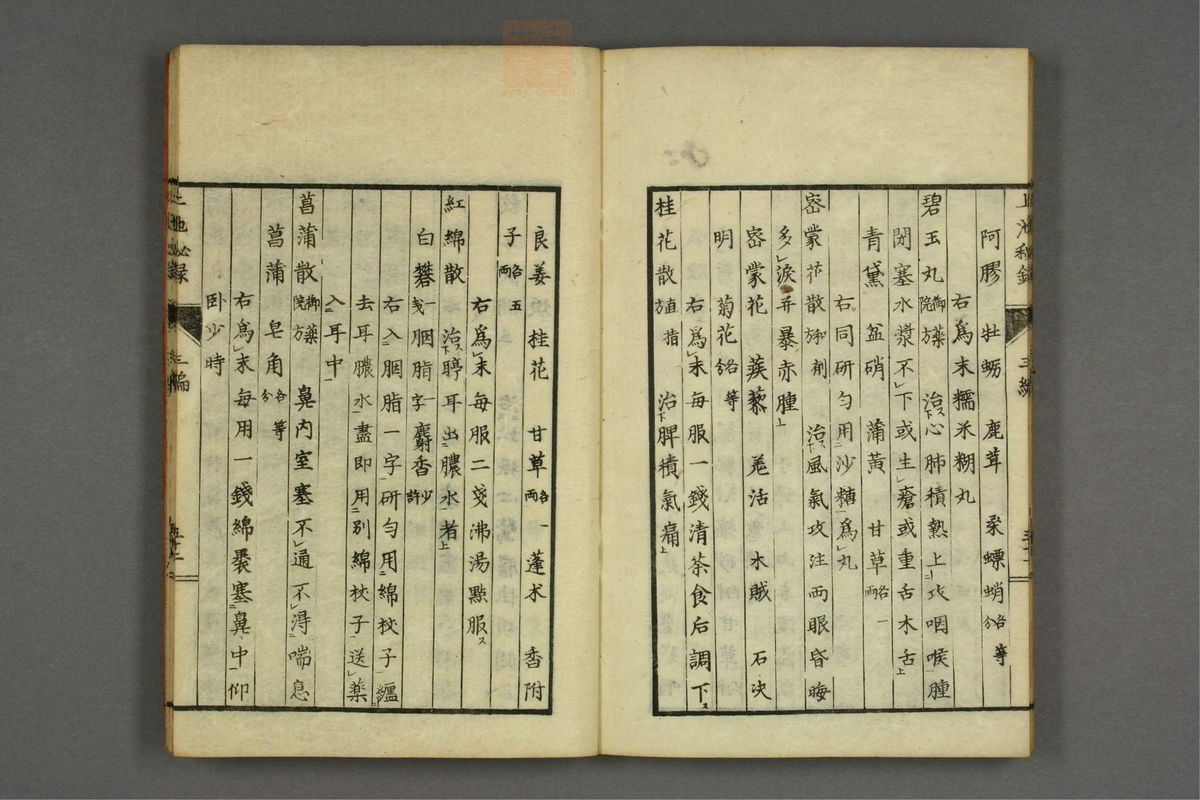 阿膠 牡蛎 鹿茸 桒螵蛸各等分
右爲末糯米糊丸
碧玉丸御藥院方 治心肺積熱上攻咽喉腫
閉塞水漿不下或生瘡或重舌木舌
青黛 盆硝 蒲黄 甘草各一両
右同研匀用沙糖爲丸
宻蒙花散御剤方 治風氣攻注両眼昏晦
多淚并暴赤腫
宻蒙花 蒺藜 羌活 木賊 石决
明 菊花各等分
右爲末每服一錢清茶食后調下
桂花散直指方 治脾積氣痛
良姜 桂花 甘草各一両 蓬朮 香附
子各五両
右爲末每服二戔沸湯點服
紅綿散 治聤耳出膿水者
白礬一戔 胭脂一字 麝香少許
右入胭脂一字研匀用綿杖子纏
去耳膿水盡即用別綿杖子送藥
入耳中
菖蒲散御藥院方 鼻内室塞不通不淂喘息
菖蒲 皂角各等分
右爲末每用一錢綿褁塞鼻中仰
卧少時
三編